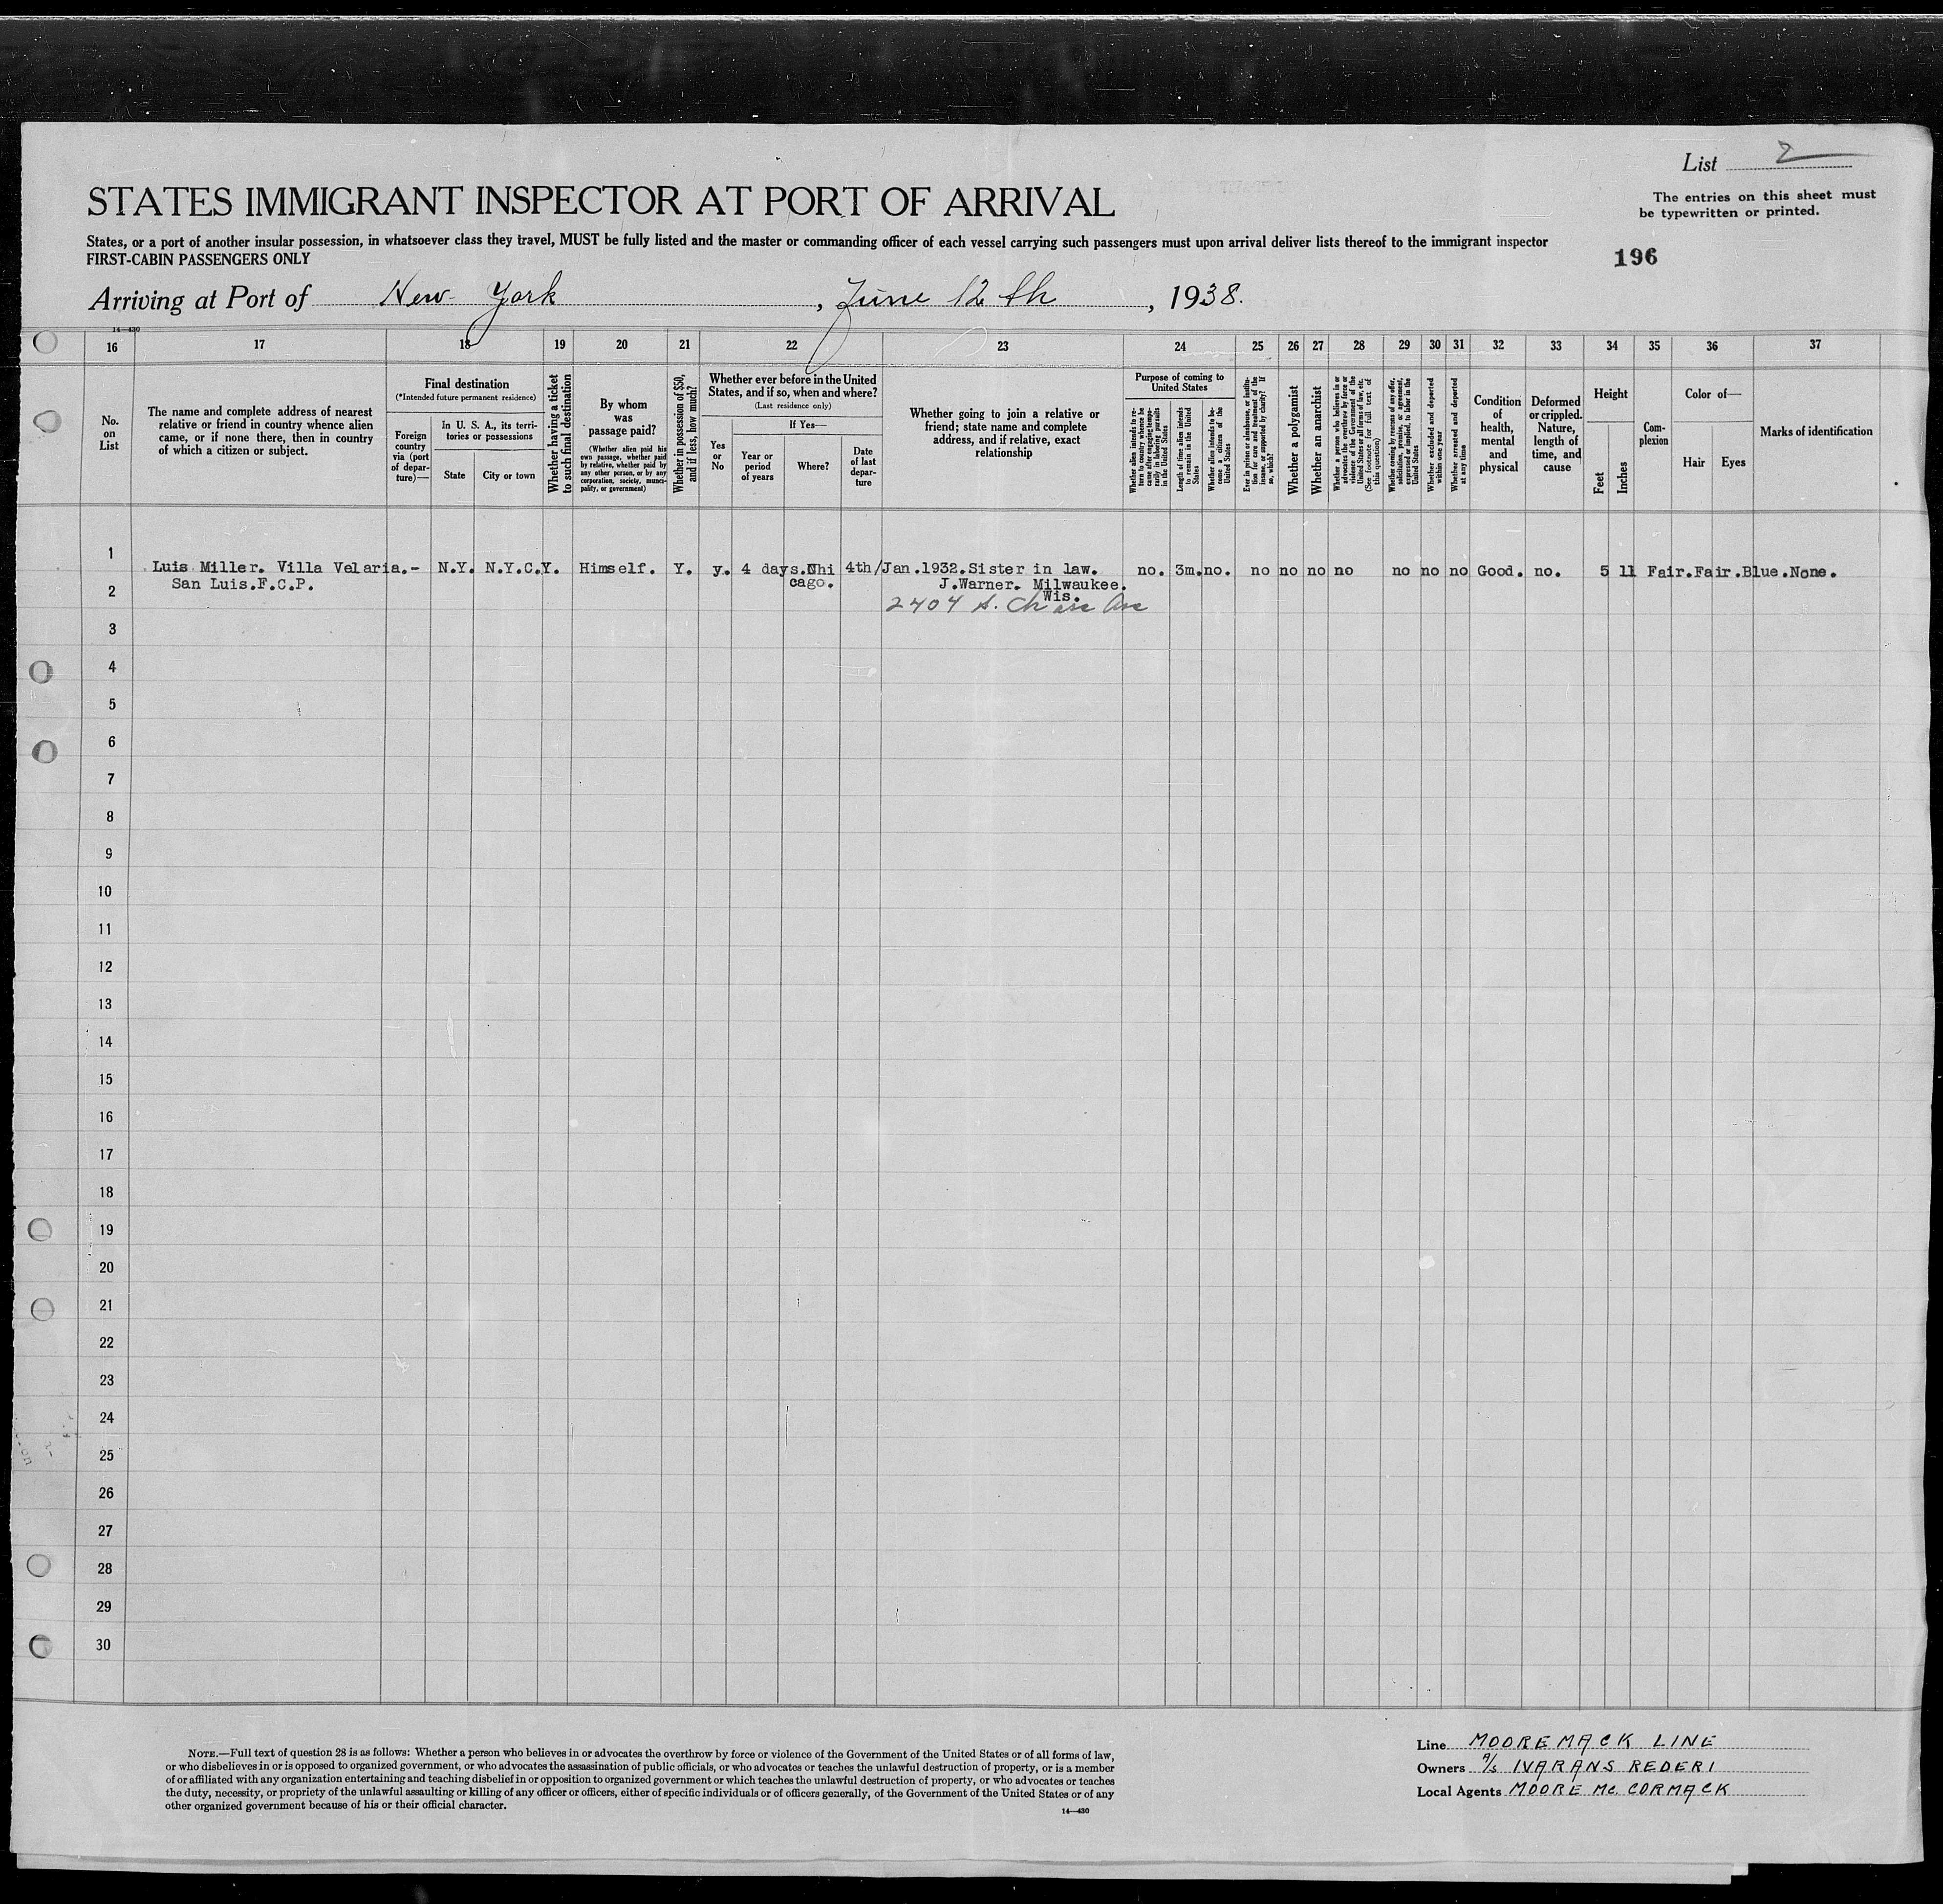 List 2
The entries on this sheet must
be typewritten or printed.
STATES IMMIGRANT INSPECTOR AT PORT OF ARRIVAL
States, or a port of another insular possession, in whatsoever class they travel, MUST be fully listed and the master or commanding officer of each vessel carrying such passengers must upon arrival deliver lists thereof to the immigrant inspector
FIRST-CABIN PASSENGERS ONLY
196
Arriving at Port of New York, June 12th, 1938.
14—430
16 17 18 19 20 21 22 23 24 25 26 27 28 29 30 31 32 33 34 35 36 37
No.
on
List
The name and complete address of nearest
relative or friend in country whence alien
came, or if none there, then in country
of which a citizen or subject.
Final destination
(*Intended future permanent residence)
Foreign
country
via (port
of depar-
ture)—
In U. S. A., its terri-
tories or possessions
State
City or town
Whether having a ticket
to such final destination
By whom
was
passage paid?
(Whether alien paid his
own passage, whether paid
by relative, whether paid by
any other person, or by any
corporation, society, munci-
pality, or government)
Whether in possession of $50,
and if less, how much?
Whether ever before in the United
States, and if so, when and where?
(Last residence only)
Yes
or
No
If Yes—
Year or
period
of years
Where?
Date
of last
depar-
ture
Whether going to join a relative or
friend; state name and complete
address, and if relative, exact
relationship
Purpose of coming to
United States
Whether alien intends to re-
turn to country whence he
came after engaging tempo-
rarily in laboring pursuits
in the United States
Length of time alien intends
to remain in the United
States
Whether alien intends to be-
come a citizen of the
United States
Ever in prison or almshouse, or institu-
tion for care and treatment of the
insane, or supported by charity? If
so, which?
Whether a polygamist
Whether an anarchist
Whether a person who believes in or
advocates the overthrow by force or
violence of the Government of the
United States or all forms of law, etc.
(See footnote for full text of
this question)
Whether coming by reason of any offer,
solicitation, promise, or agreement,
expressed or implied, to labor in the
United States
Whether excluded and deported
within one year
Whether arrested and deported
at any time
Condition
of
health,
mental
and
physical
Deformed
or crippled.
Nature,
length of
time, and
cause
Height
Feet
Inches
Com-
plexion
Color of—
Hair
Eyes
Marks of identification
1
Luis Miller. Villa Velaria.- N.Y. N.Y.C.Y. Himself. Y. y. 4 days.Chi 4th/Jan.1932.Sister in law. no. 3m.no. no no no no no no no Good. no. 5 11 Fair.Fair.Blue.None.
San Luis.F.C.P. cago. J.Warner. Milwaukee.
2 Wis.
2404 S. Chase Ave
3
4
5
6
7
8
9
10
11
12
13
14
15
16
17
18
19
20
21
22
23
24
25
26
27
28
29
30
NOTE.—Full text of question 28 is as follows: Whether a person who believes in or advocates the overthrow by force or violence of the Government of the United States or of all forms of law,
or who disbelieves in or is opposed to organized government, or who advocates the assassination of public officials, or who advocates or teaches the unlawful destruction of property, or is a member
of or affiliated with any organization entertaining and teaching disbelief in or opposition to organized government or which teaches the unlawful destruction of property, or who advocates or teaches
the duty, necessity, or propriety of the unlawful assaulting or killing of any officer or officers, either of specific individuals or of officers generally, of the Government of the United States or of any
other organized government because of his or their official character.
14—430
Line MOOREMACK LINE
Owners A/S IVARANS REDERI
Local Agents MOORE Mc. CORMACK